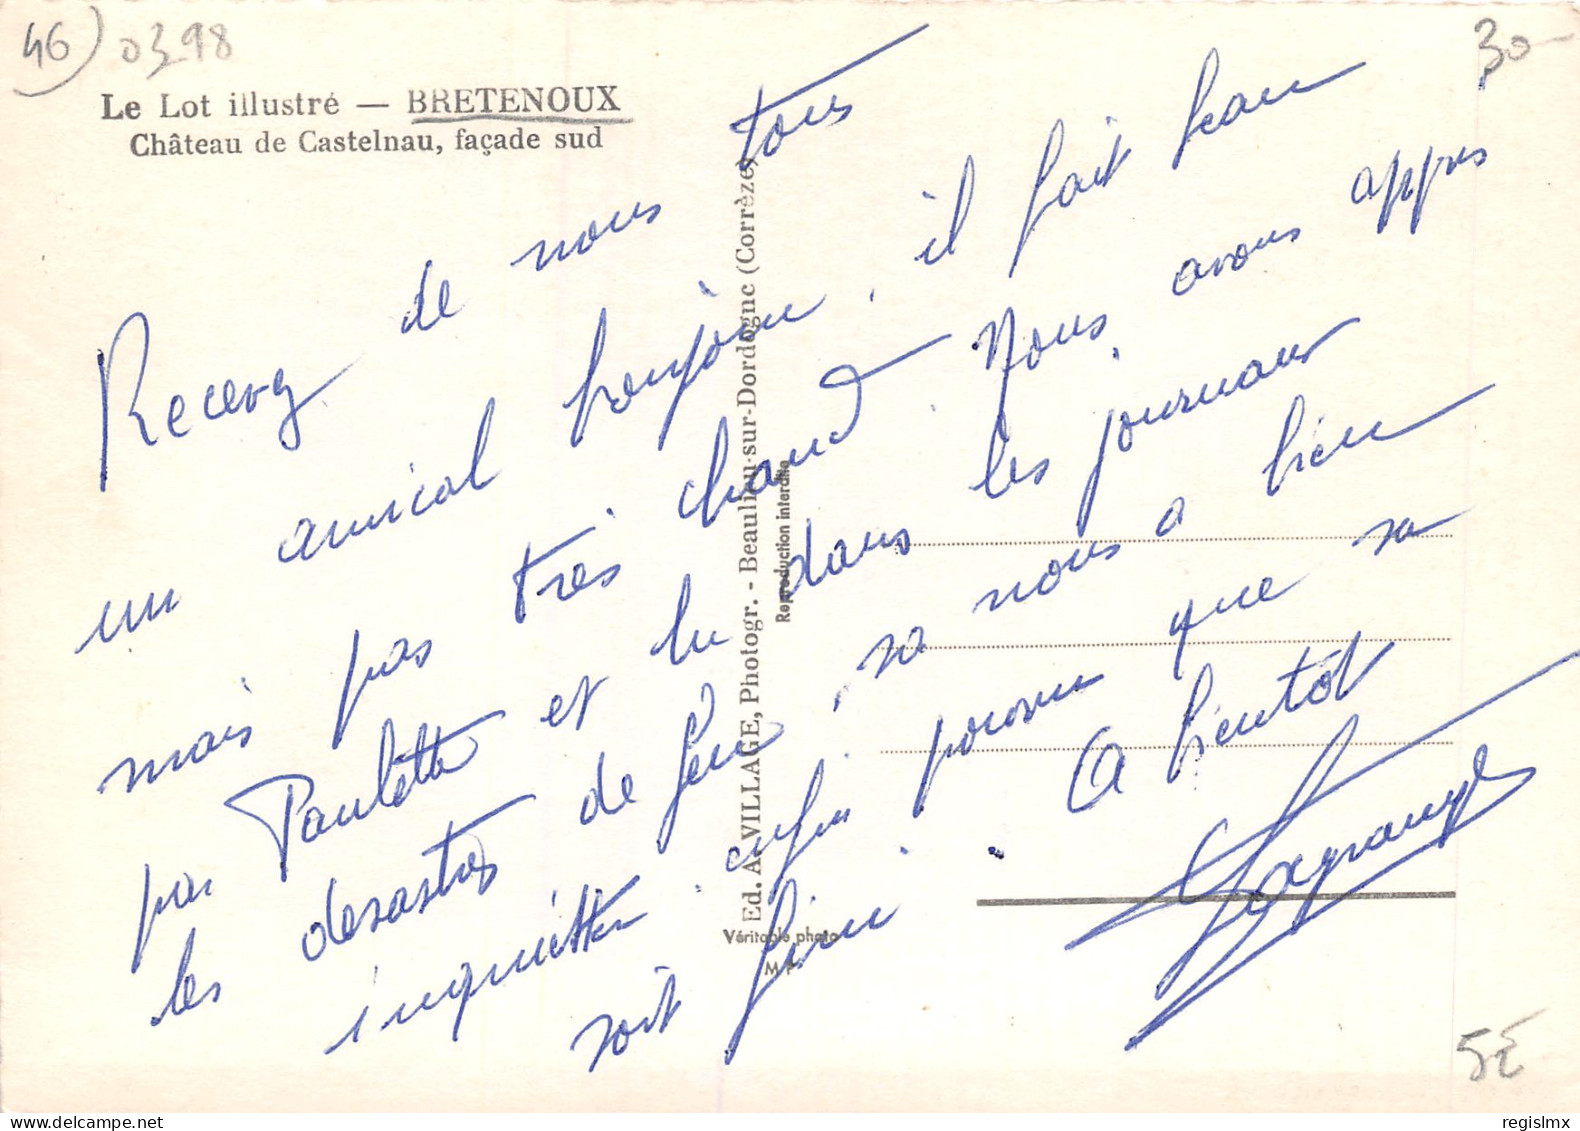 46) 0398
30-
Le Lot illustré — BRETENOUX
Château de Castelnau, façade sud
Recevez de nous tous
un amical bonjour, il fait beau
mais pas très chaud. Nous avons appris
par Paulette et lu dans les journaux
les desastres de , sa nous a bien
inquietter enfin pourvu que sa
soit fini. A bientot
Lagrange
Ed. A. VILLAGE, Photogr. - Beaulieu-sur-Dordogne (Corrèze)
Reproduction interdite
Véritable photo
M P
5E
regislmx